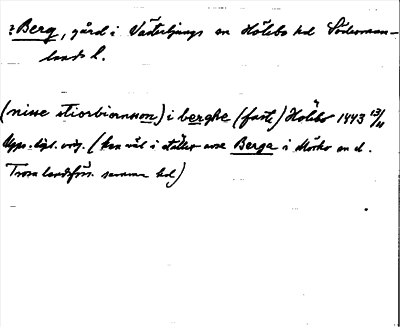 ? Berg, gård i Västerljungs sn Hölebo hd Söderman-
lands l.
(nisse stiorbiornsson) i berghe (faste) Hölebo 1443 13/11
Upps. dipl. övs. (kan väl i stället avse Berga i Mörkö sn d.
Trosa landsförs. samma hd)